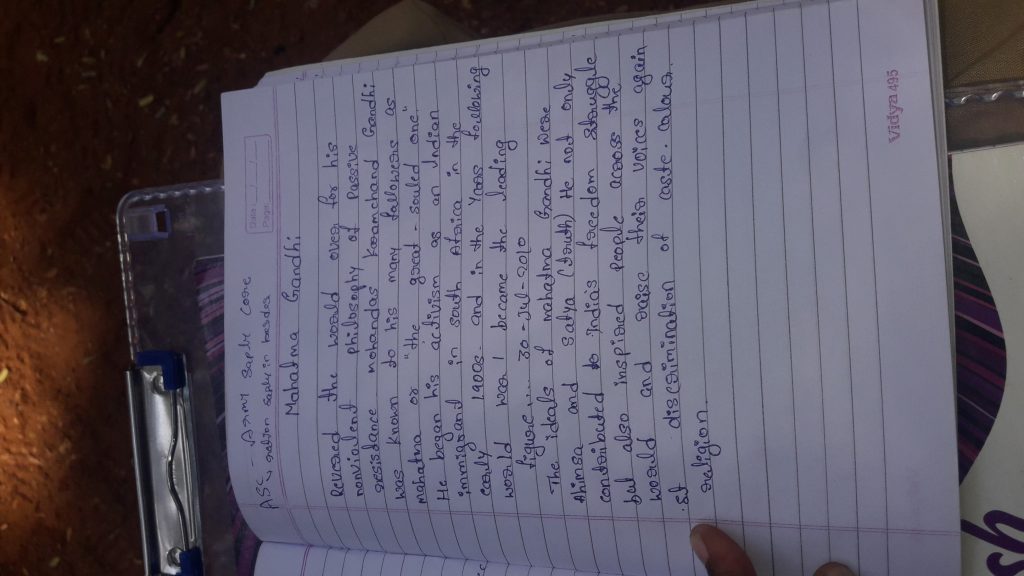 ASC - Army Saplk Core
ration saplk in border
Date / /
Page
Mahatma Grandhi
Revered the world over for his
nonviolent philosophy of Passive
resistance mohandas Karamchand Gandhi
was known to his many followeras as
mahatma or "the great - souled one"
He began his activism as an Indian
immigrand in south Africa in the
early 1900s. and in the Years following
world war 1 became the leading
figure..... 30 - Jul - 2010
The ideals of mahatma Grandhi were
Ahimsa and satya (truth) He not only
contributed to india's freedom struggle
but also inspired people across the
world and raise their voices again
st discrimination of caste. colour.
religion
Vidya 495
sh